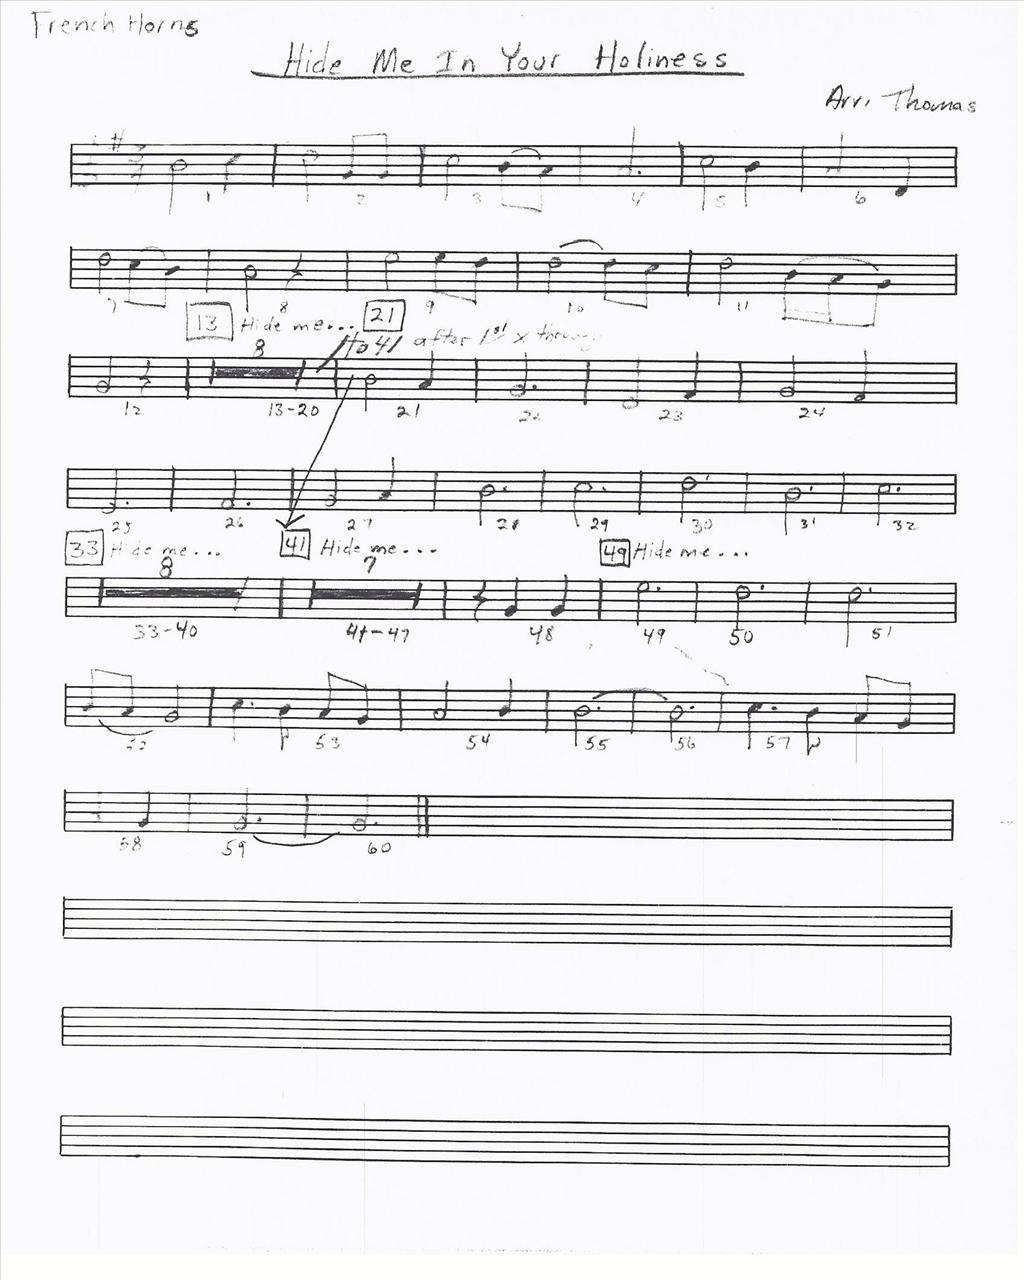 French Horns
Hide Me In Your Holiness
Arr. Thomas
1 2 3 4 5 6
7 8 9 10 11
13 Hide me... 21
8 to 41 after 1st x through
12 13-20 21 22 23 24
25 26 27 28 29 30 31 32
33 Hide me... 41 Hide me... 49 Hide me...
8 7
33-40 41-47 48 49 50 51
52 53 54 55 56 57
58 59 60